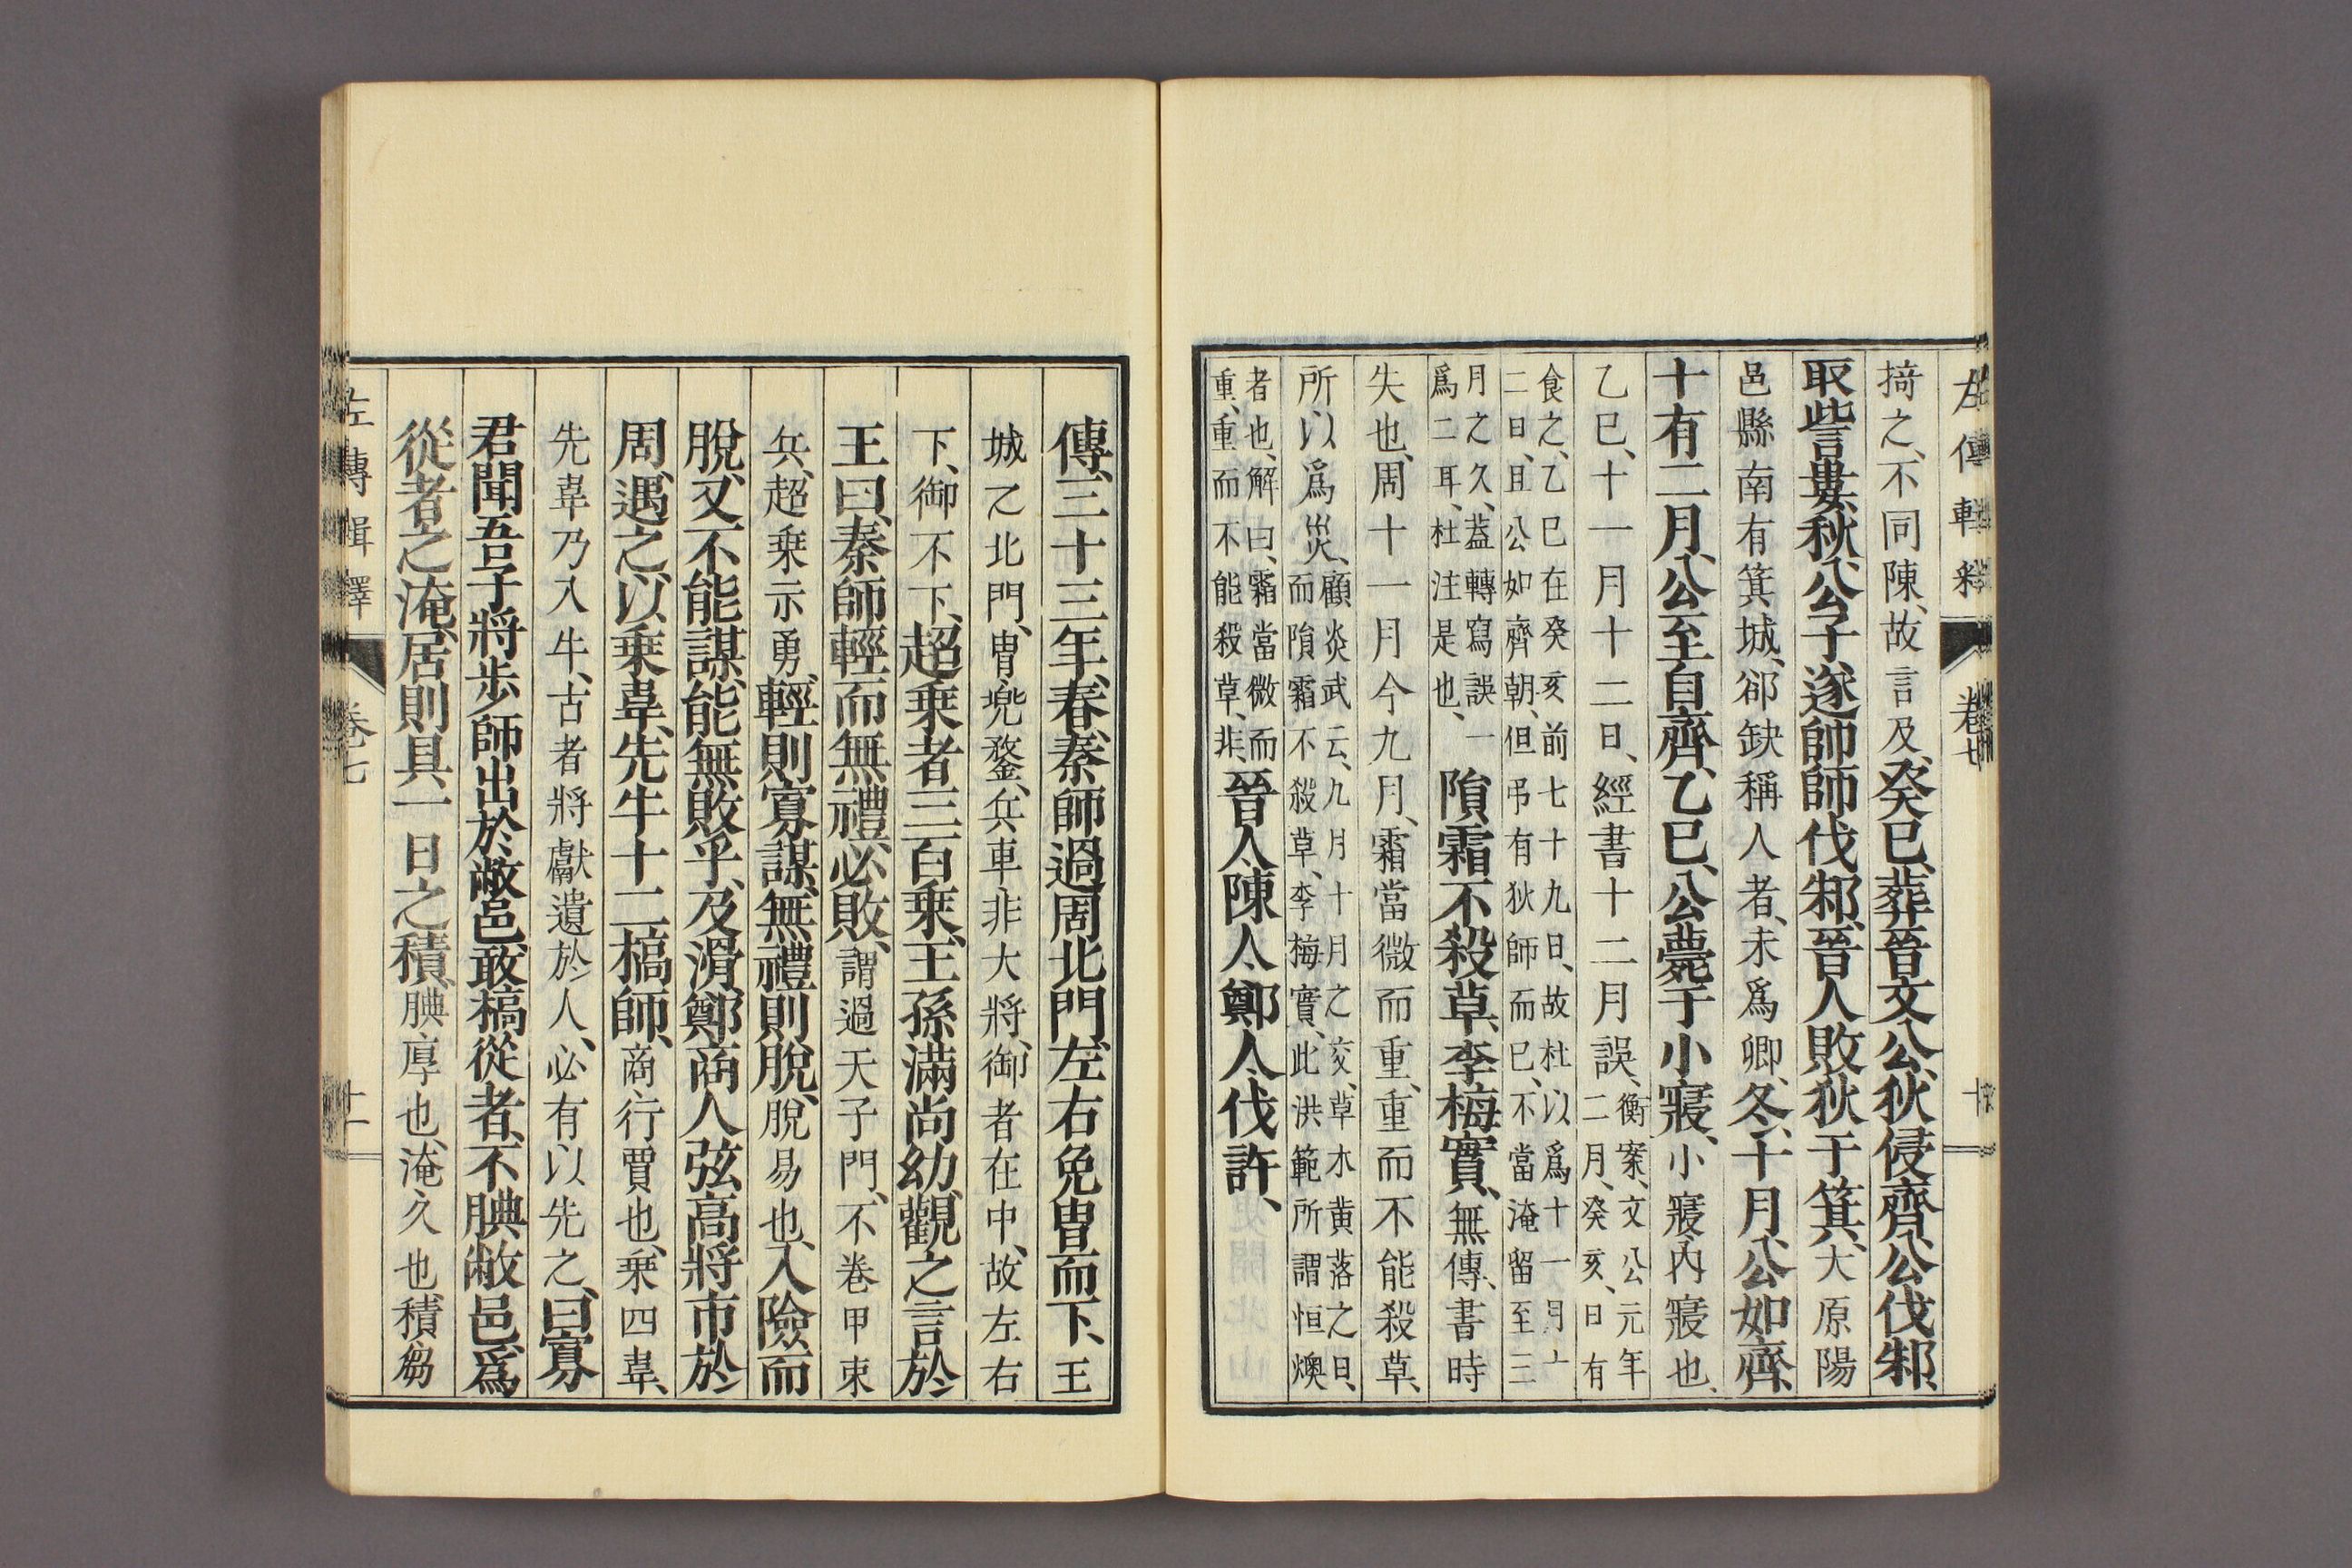 左傳輯釋 卷七 十
掎之、不同陳、故言及、癸巳、葬晉文公、狄侵齊、公伐邾、
取訾婁、秋、公子遂帥師伐邾、晉人敗狄于箕、大原陽
邑縣南有箕城、郤缺稱人者、未爲卿、冬、十月、公如齊、
十有二月、公至自齊、乙巳、公薨于小寢、小寢、內寢也、
乙巳、十一月十二日、經書十二月誤、衡案、文公元年二月、癸亥、日有
食之、乙巳在癸亥前七十九日、故杜以爲十一月十二日、且公如齊朝、但弔有狄師而已、不當淹留至三
月之久、蓋轉寫誤一爲二耳、杜注是也、隕霜不殺草、李梅實、無傳、書時
失也、周十一月今九月、霜當微而重、重而不能殺草、
所以爲災、顧炎武云、九月十月之交、草木黃落之日、而隕霜不殺草、李梅實、此洪範所謂恒燠
者也、解曰、霜當微而重、重而不能殺草、非、晉人、陳人、鄭人伐許、
傳、三十三年、春、秦師過周北門、左右免冑而下、王
城之北門、冑、兜鍪、兵車非大將、御者在中、故左右
下、御不下、超乘者三百乘、王孫滿尚幼、觀之言於
王曰、秦師輕而無禮、必敗、謂過天子門、不卷甲束
兵、超乘示勇、輕則寡謀、無禮則脫、脫易也、入險而
脫、又不能謀、能無敗乎、及滑、鄭商人弦高將市於
周、遇之、以乘韋、先牛十二犒師、商、行賈也、乘四韋、
先韋乃入牛、古者將獻遺於人、必有以先之、曰、寡
君聞吾子將步師出於敝邑、敢犒從者、不腆敝邑、爲
從者之淹、居則具一日之積、腆、厚也、淹、久也、積、芻
左傳輯釋 卷七 十一